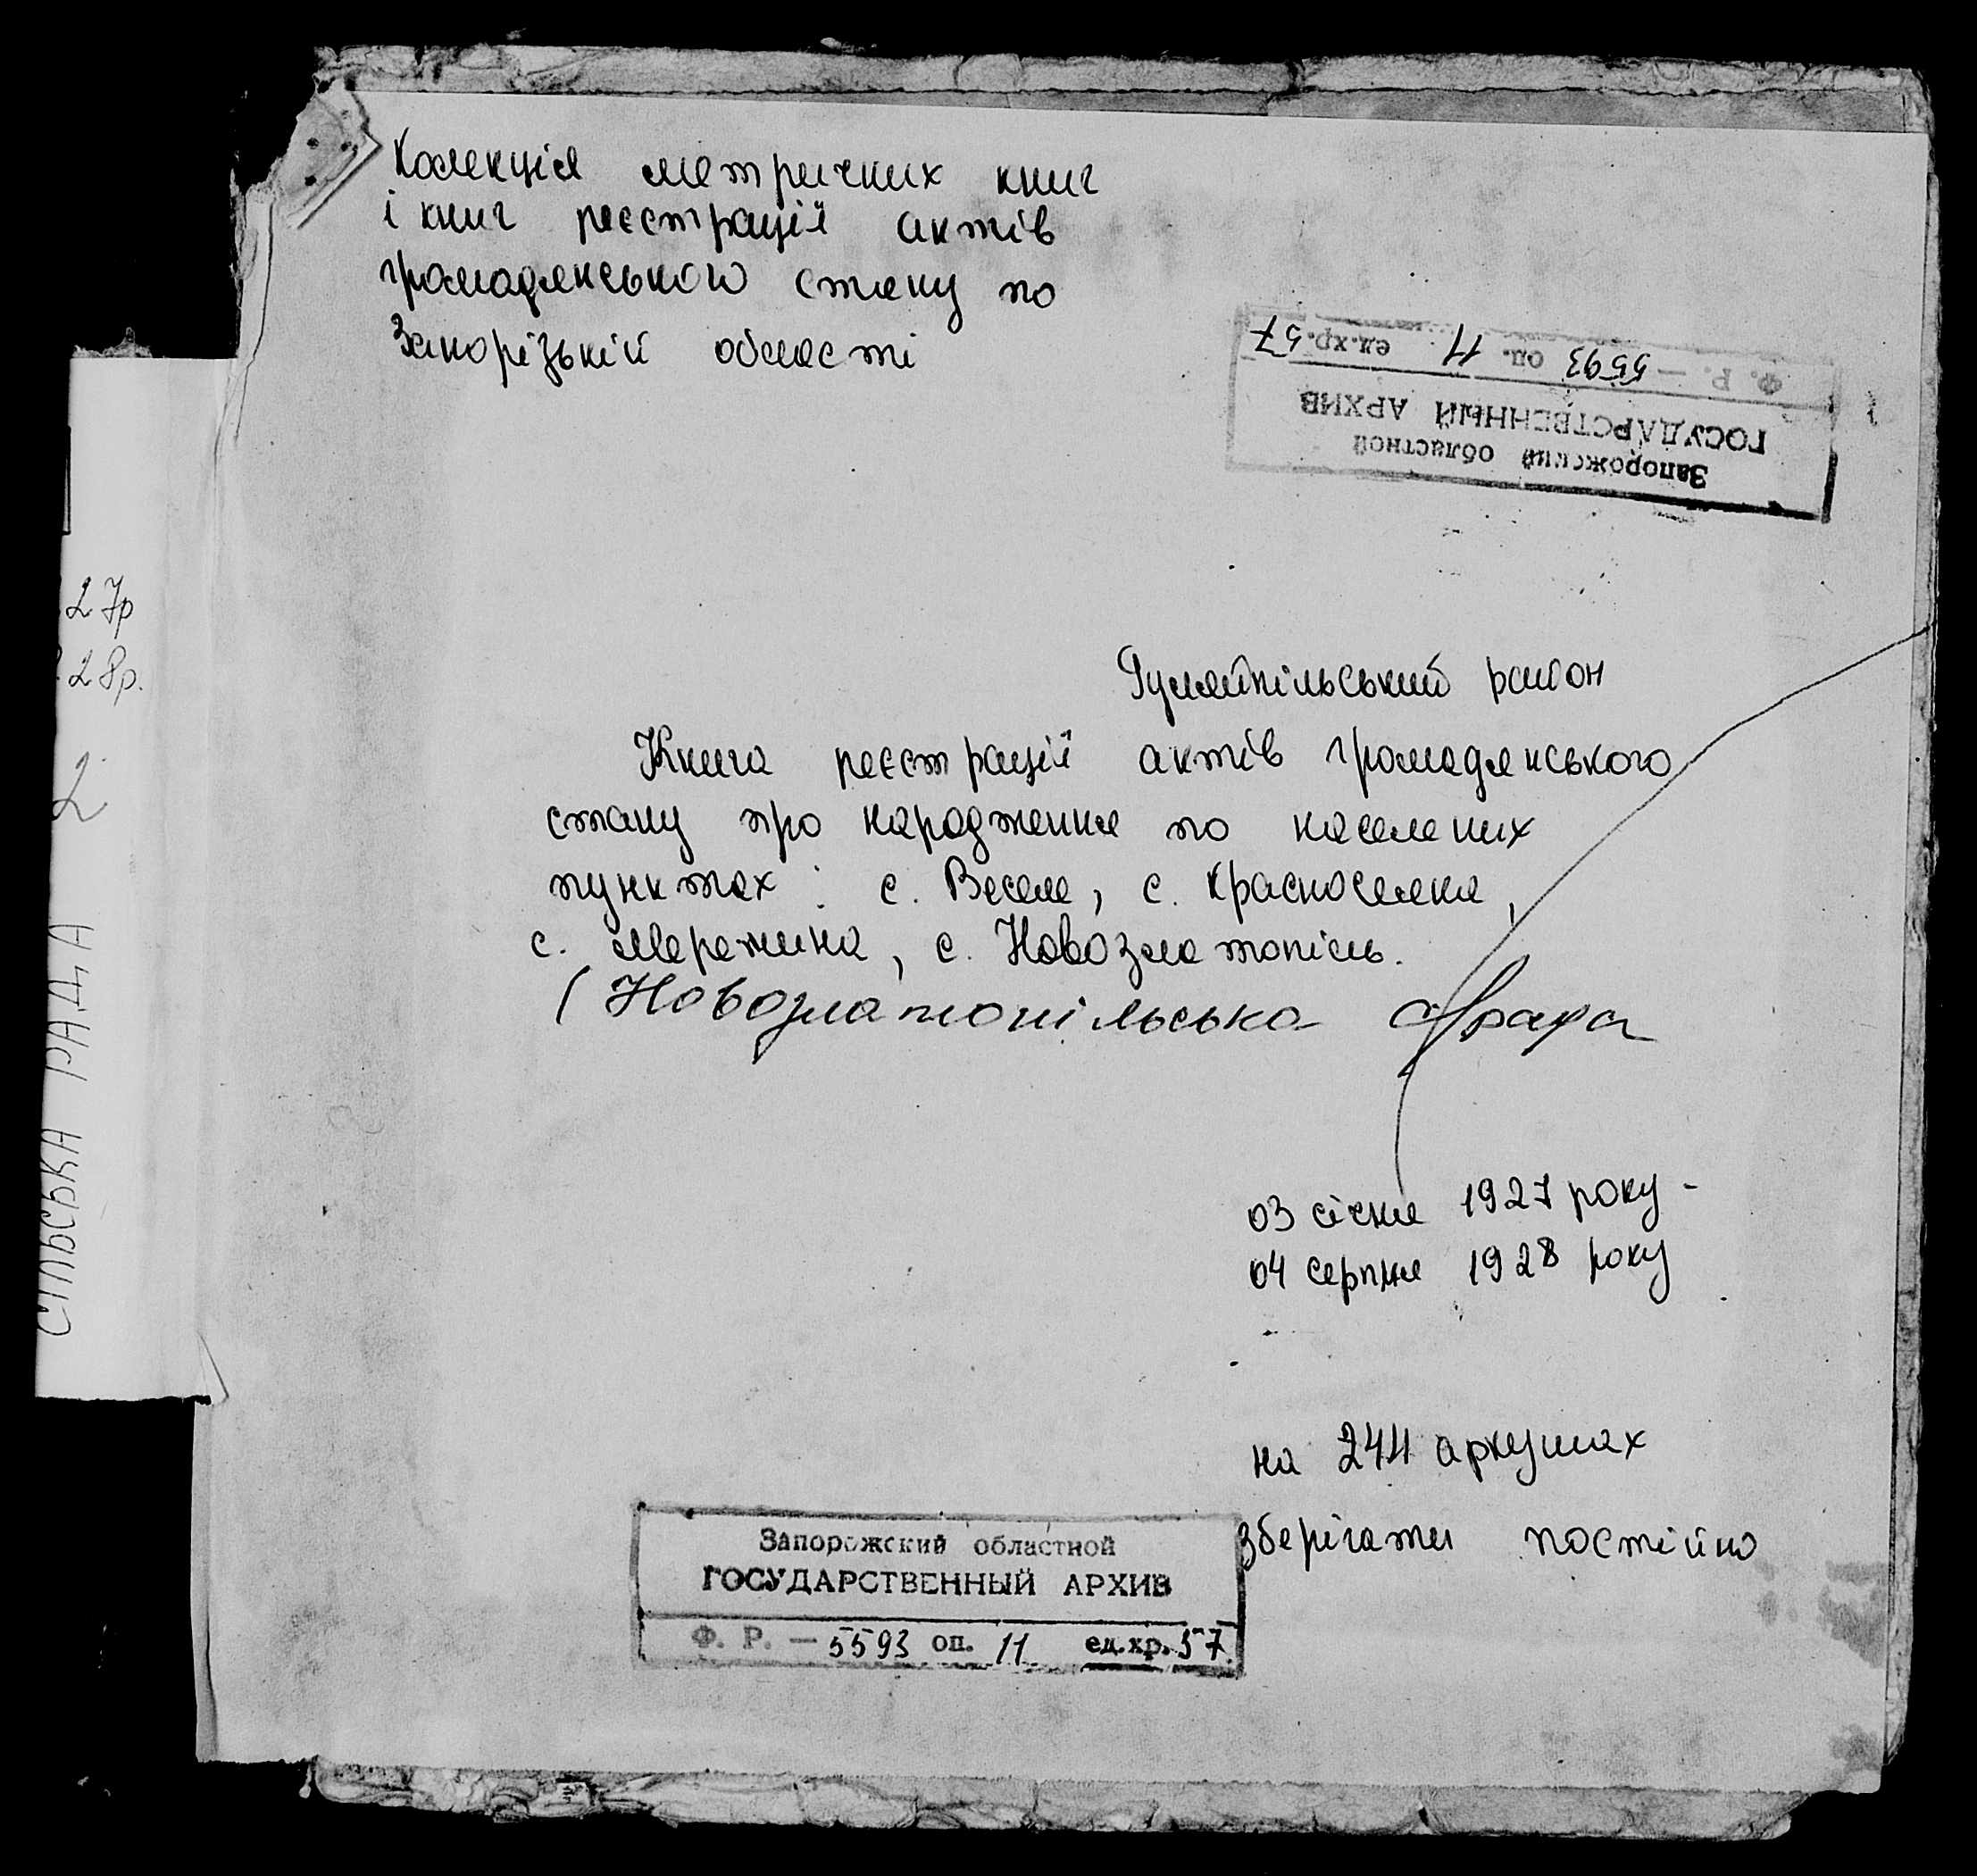 Колекція метричних книг
і книг реєстрації актів
громадянського стану по
Запорізькій області
Запорожский областной
ГОСУДАРСТВЕННЫЙ АРХИВ
Ф. Р. — 5593 оп. 11 ед.хр. 57
27р
28р.
2
СІЛЬСЬКА РАДА
Гуляйпільський район
Книга реєстрації актів громадянського
стану про народження по населених
пунктах: с. Веселе, с. Красноселка,
с. Мережина, с. Новозлатопіль.
(Новозлатопільська с/рада
03 січня 1927 року -
04 серпня 1928 року
на 244 аркушах
зберігати постійно
Запорожский областной
ГОСУДАРСТВЕННЫЙ АРХИВ
Ф. Р. — 5593 оп. 11 ед.хр. 57